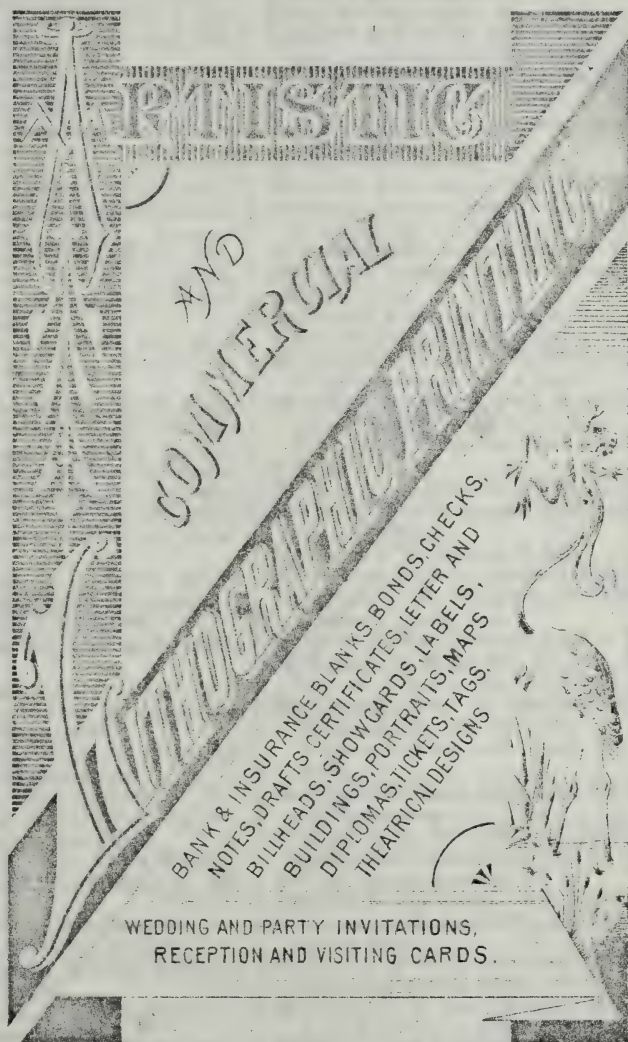 ARTISTIC
AND
COMMERCIAL
LITHOGRAPHIC PRINTING
BANK & INSURANCE BLANKS, BONDS, CHECKS,
NOTES, DRAFTS CERTIFICATES, LETTER AND
BILLHEADS, SHOWCARDS, LABELS,
BUILDINGS, PORTRAITS, MAPS
DIPLOMAS, TICKETS, TAGS,
THEATRICAL DESIGNS
WEDDING AND PARTY INVITATIONS,
RECEPTION AND VISITING CARDS.